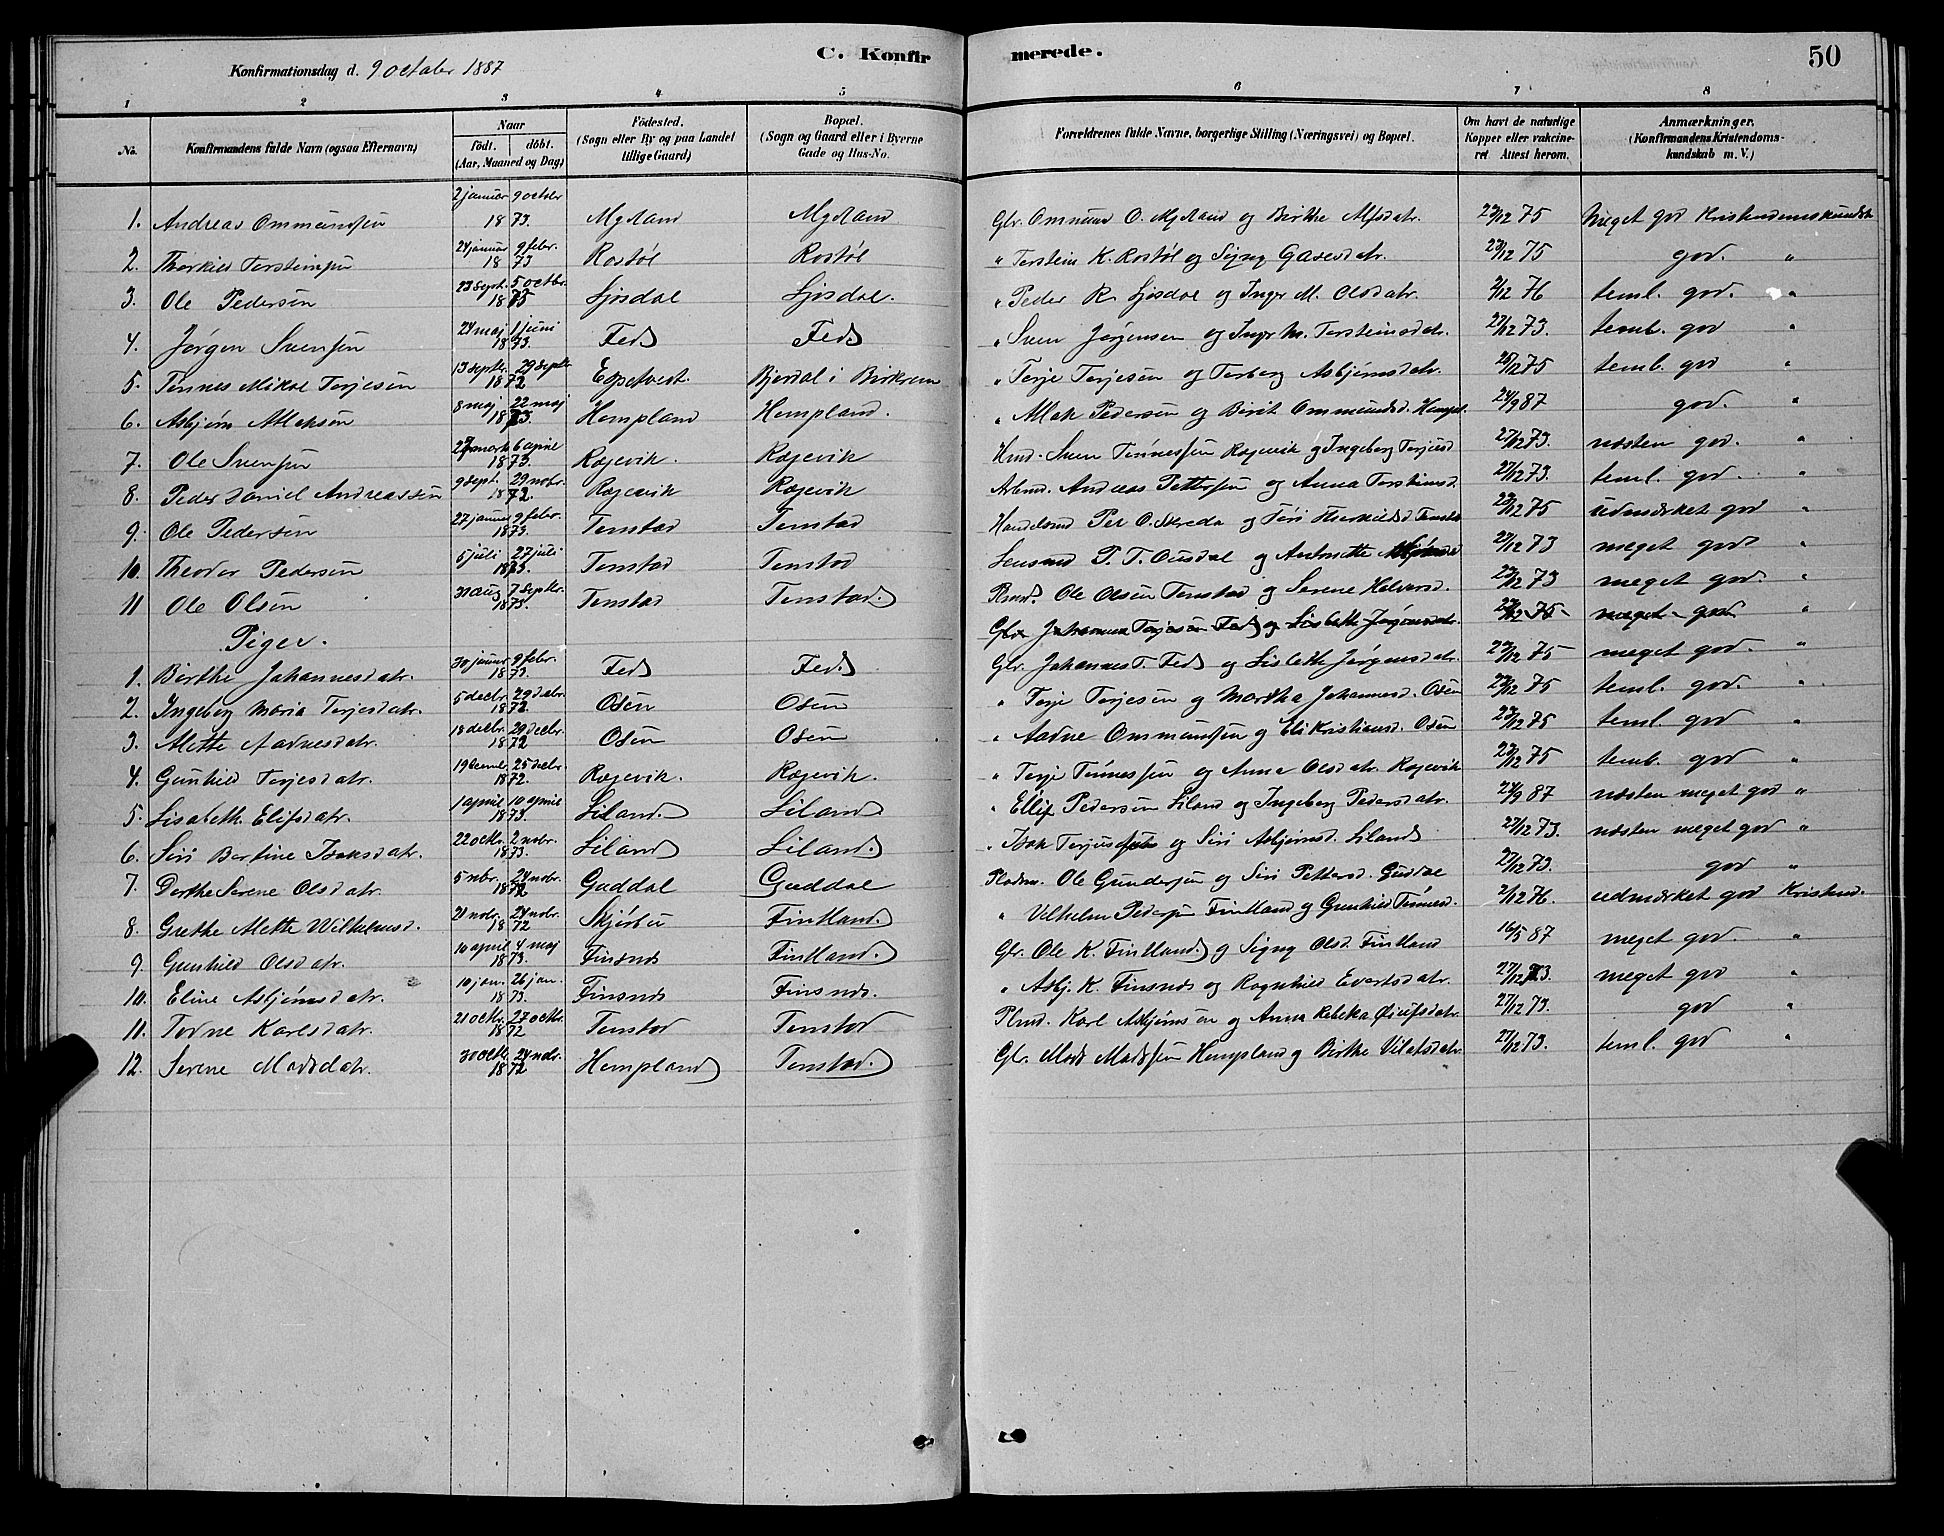 C. Konfirmerede. 50
Konfirmationsdag d. 9 october 1887
1 2 3 4 5 6 7 8
No. Konfirmandens fulde Navn (ogsaa Efternavn) Naar födt. döbt. (Aar, Maaned og Dag) Födested. (Sogn eller By og paa Landet tillige Gaard) Bopæl. (Sogn og Gaard eller i Byerne Gade og Hus-No. Forældrenes fulde Navne, borgerlige Stilling (Næringsvei) og Bopæl. Om havt de naturlige Kopper eller vakcineret Attest herom. Anmærkninger. (Konfirmandens Kristendomskundskab m. V.)
1. Andreas Ommundsen 2 januar 9 octber 1873. Mydland Mydland Gbr. Ommund O. Mydland og Birthe Alfsdatr. 75 Meget god Kristendomskundsk
2. Thorkild Torsteinsen 24 januar 9 febr. 1873 Rostøl Rostøl " Torstein K. Rostøl og Signy 75 god. "
3. Ole Pedersen 23 Sept. 5 octbr. 1875 " Peder R. og Inger M. Olsdatr. 2/12 76 teml. god. "
4. Jørgen Svensen 24 maj 1 juni 1873. Feds Feds " Sven Jørgensen og Ingr M. Torsteinsdatr. 27/12 73. teml. god "
5. Tønnes Mikal Terjesen 13 septbr. 29 septbr. 1872 Espetvest. Bjordal i Birkrem " Terje Terjesen og Torborg Asbjørnsdatr. 75 teml. god "
6. Asbjørn Atlaksen 8 maj 22 maj 1873. Hompland Hompland. " Pedersen og Berit Ommundsd. Hompl. 24/9 87 god. "
7. Ole Svensen 6 april 1873. Rægevik. Rægevik Hmd. Sven Tønnessen Rægevik og Ingeborg Terjesd 27/12 73. næsten god. "
8. Peder Daniel Andreassen 9 sept. 29 nobr. 1872. Rægevik Rægevik Andreas Pettersen og Anna Torsteinsd. 27/12 73. teml. god. "
9. Ole Pedersen 27 januar 9 febr. 1873. Tonstad Tonstad Per O. Skreda og Thorkildsd Tonstad 75 udmærket god "
10. Theodor Pedersen 5 juli 27 juli 1873. Tonstad Tonstad Lensmd P. T. Ousdal og Antonette 27/12 73 meget god "
11 Ole Olsen 31 aug 7 septbr. 1873. Tonstad Tonstad. Ole Olsen Tonstad og Serene Halvorsd. 73 meget god. "
Gbr. Johannes Terjesen Feds og Lisbeth Jørgensdatr. 75 meget god "
Piger.
1. Birthe Johannesdatr. 30 januar 9 febr. 1873. Feds Feds. Gbr. Johannes T. Feds og Lisbeth Jørgensdatr. 75 meget god. "
2. Ingeborg Maria Terjesdatr. 5 decbr. 29 decbr. 1872. Osen Osen " Terje Terjesen og Martha Johannesd. Osen 75 teml. god. "
3. Mette Aadnesdatr. 18 decbr. 29 decbr. 1872 Osen Osen " Aadne Ommundsen og Eli Kristiansd. Osen 75 teml god "
4. Gunhild Terjesdatr. 25 decbr. 1872. Rægevik. Rægevik. " Terje Tønnessen og Anna Olsdatr. Rægevik 75 teml. god "
5. Lisabeth Elifsdatr. 1 april 10 april 1873. Liland. Liland " Ellif Pedersen Liland og Ingeborg Pedersdatr. 24/9 87 næsten meget god "
6. Siri Bertine Isaksdatr. 22 octbr. 2 nobr. 1873. Liland Liland. " Isak Terjusen og Siri Asbjørnsd. Liland 27/12 73. næsten meget god "
7. Dorthe Serene Olsdatr. 5 nbr. 24 nobr. 1872 Guddal Guddal Pladsm. Ole Gundersen og Siri Pettersd. Guddal 27/12 73. god "
8. Grethe Mette Wilhelmsd. 21 nobr. 24 nobr. 1872 Fintland. " Vilhelm Pedersen Fintland og Gunhild Tønnesd. 2/12 76. udmærket god Kristend.
9. Gunhild Olsdatr. 10 april 4 maj 1873. Finsnæs Fintland. Gbr. Ole K. Fintland. og Signy Olsd. Fintland 16/5 87 meget god. "
10. Eline Asbjørnsdatr. 10 jan. 26 jan. 1873. Finsnæs Finsnæs. " Asbj. K. Finsnæs og Ragnhild Evertsdatr. 27/12 73. meget god "
11. Todne Karlsdatr. 21 octbr. 27 octbr. 1872 Tonstad Tonstad Plmd. Karl Asbjørnsen og Anna Rebeka 27/12 73. god "
12. Serene Madsdatr. 30 octbr. 24 nobr. 1872 Hompland Tonstad. Gbr. Mads Madssen Hompland og Birthe 27/12 73. teml. god "